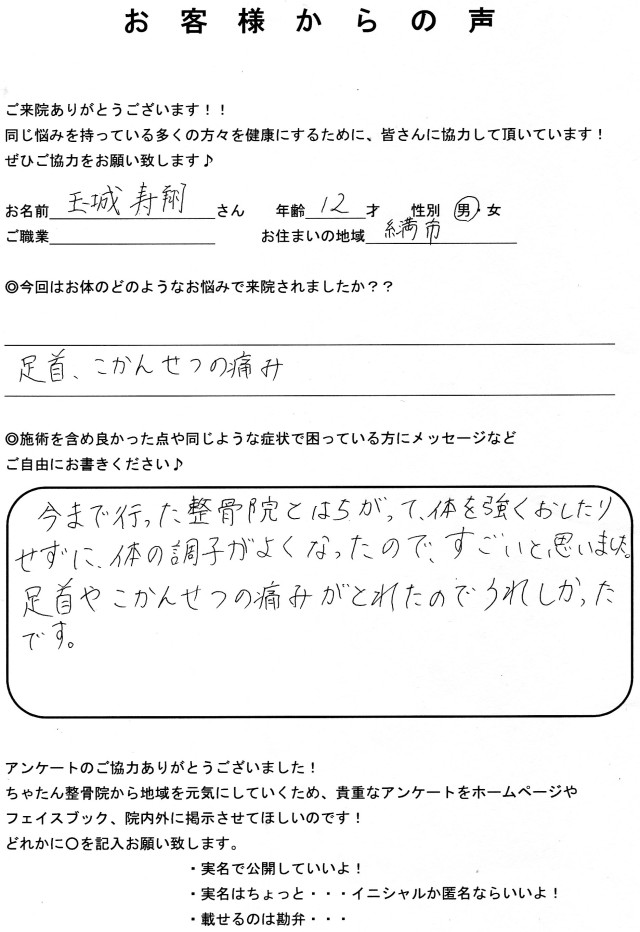 お客様からの声
ご来院ありがとうございます！！
同じ悩みを持っている多くの方々を健康にするために、皆さんに協力して頂いています！
ぜひご協力をお願い致します♪
お名前 玉城 寿翔 さん 年齢 12 才 性別 男・女
ご職業 お住まいの地域 糸満市
◎今回はお体のどのようなお悩みで来院されましたか？？
足首、こかんせつの痛み
◎施術を含め良かった点や同じような症状で困っている方にメッセージなど
ご自由にお書きください♪
今まで行った整骨院とはちがって、体を強くおしたり
せずに、体の調子がよくなったので、すごいと思いました。
足首やこかんせつの痛みがとれたのでうれしかった
です。
アンケートのご協力ありがとうございました！
ちゃたん整骨院から地域を元気にしていくため、貴重なアンケートをホームページや
フェイスブック、院内外に掲示させてほしいのです！
どれかに〇を記入お願い致します。
・実名で公開していいよ！
・実名はちょっと・・・イニシャルか匿名ならいいよ！
・載せるのは勘弁・・・